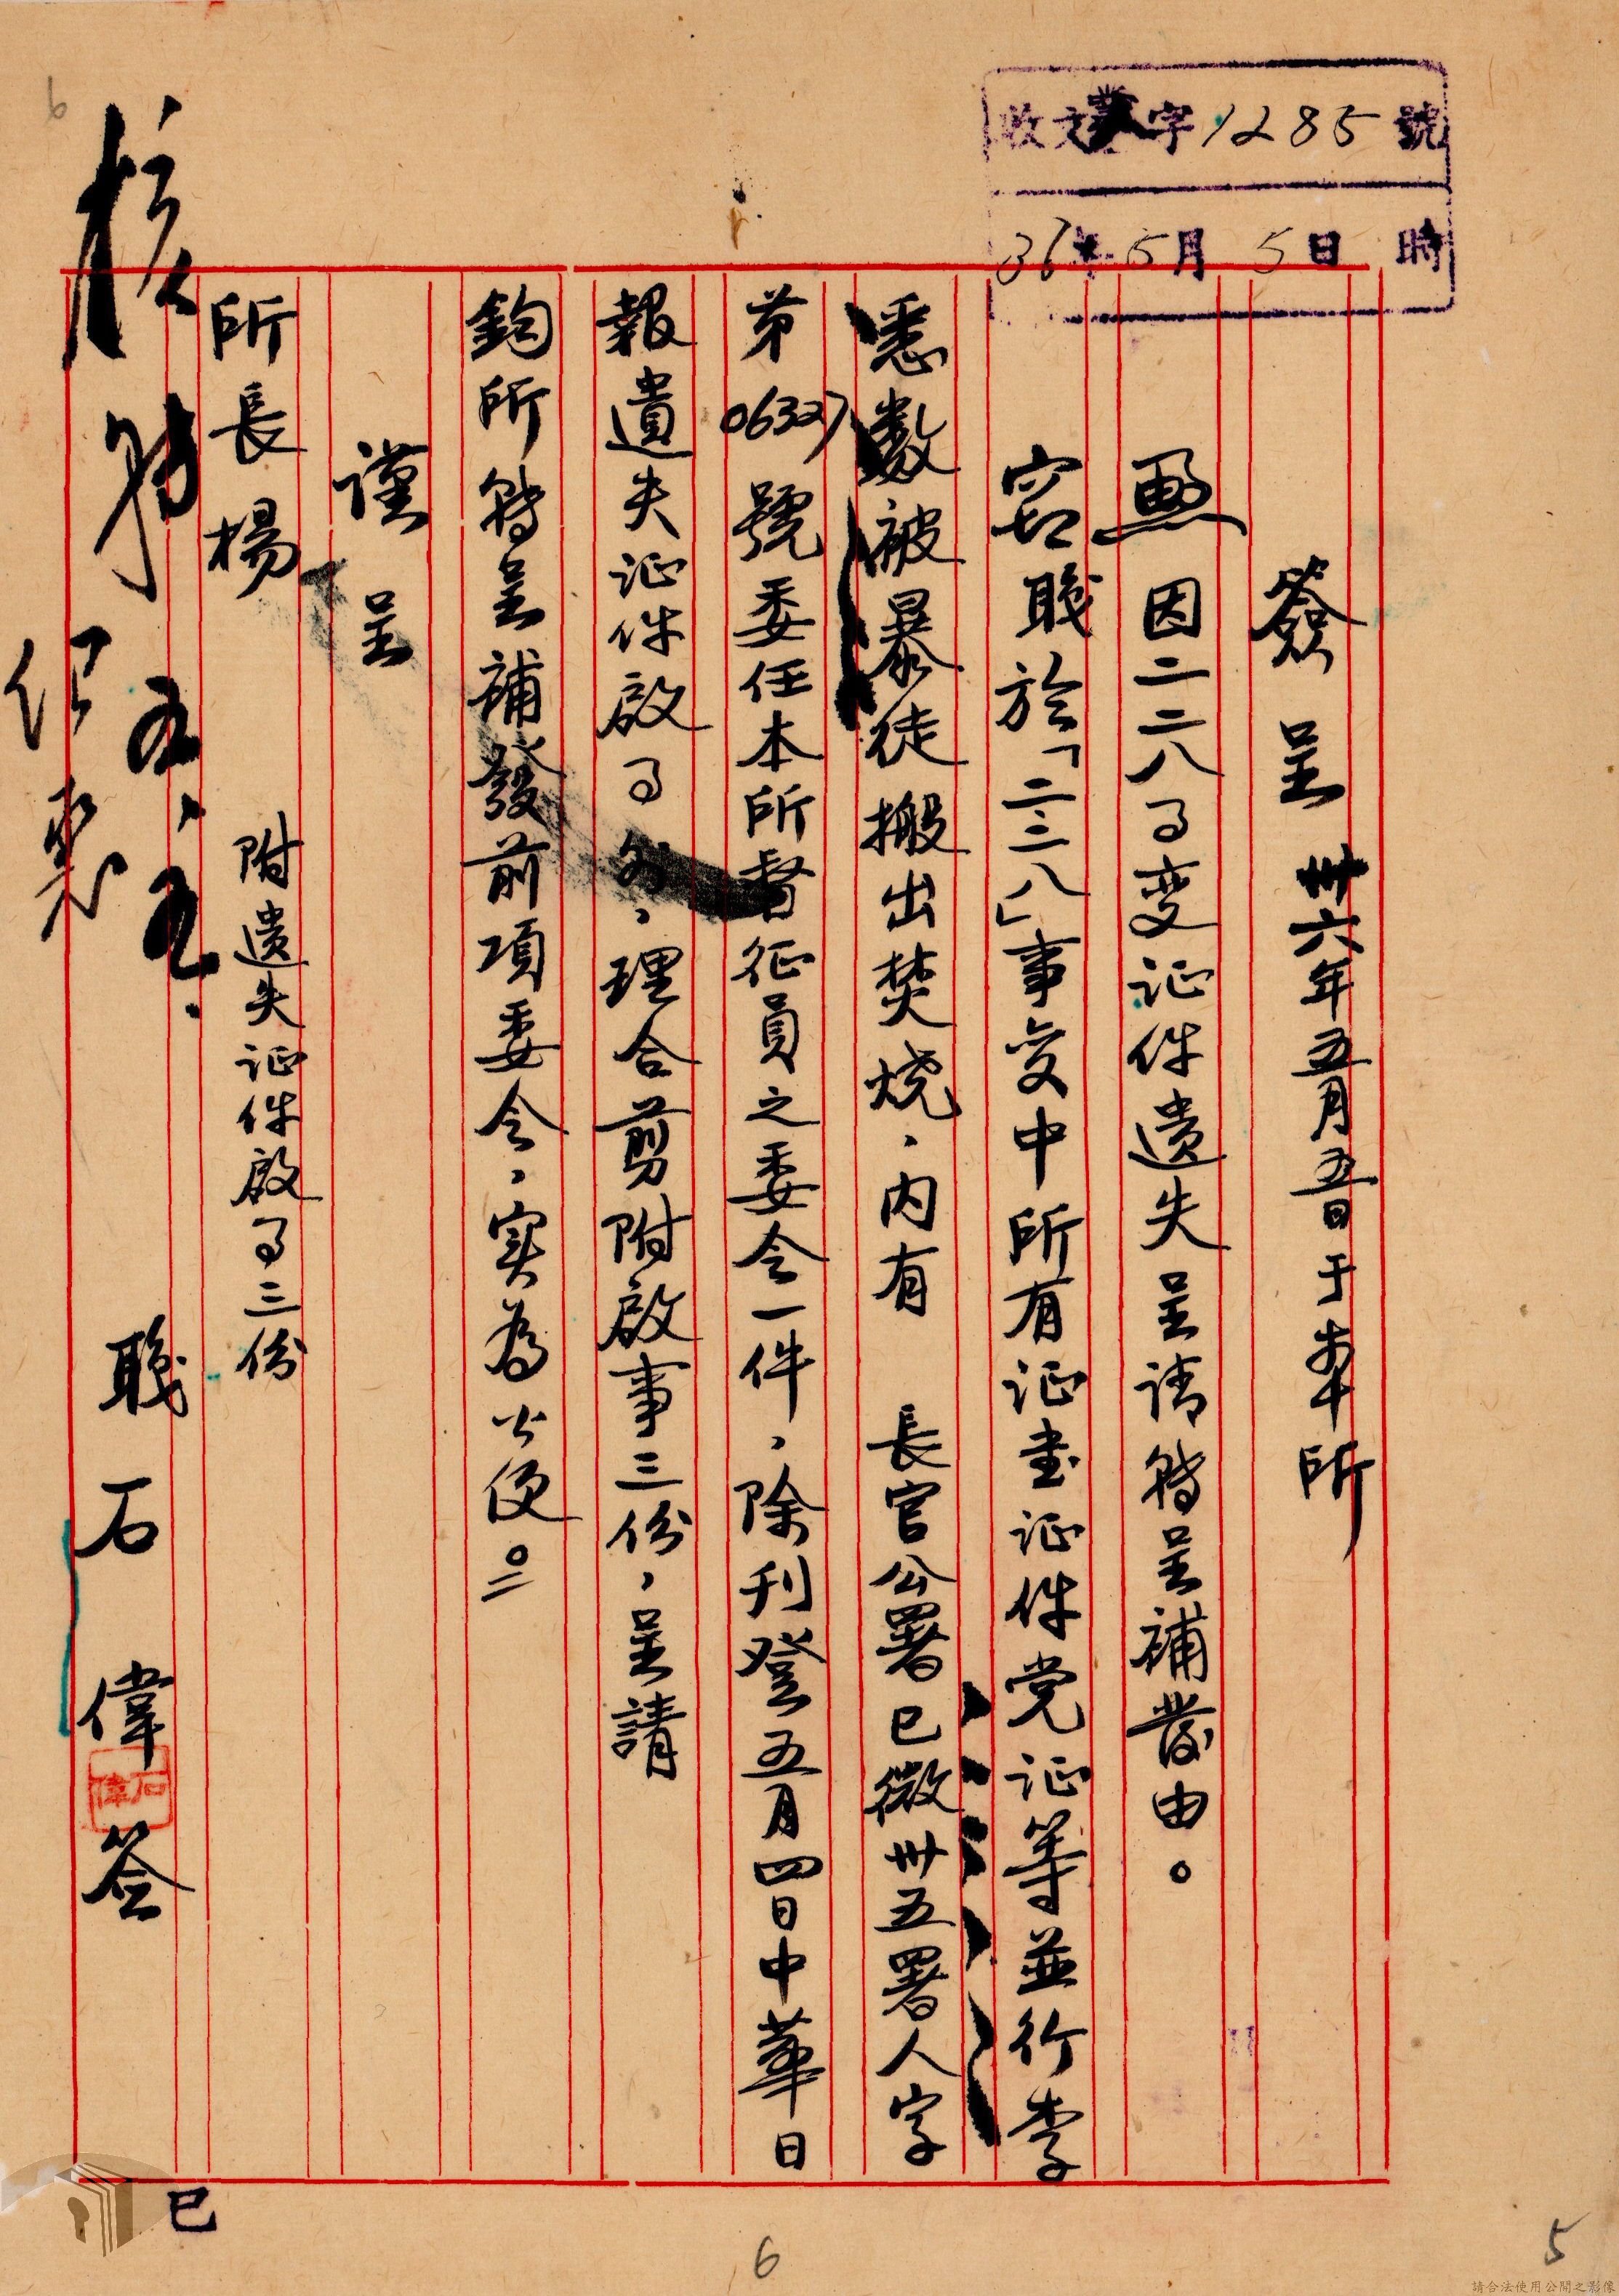 收文 字1285號
36年5月5日 時
簽呈 卅六年五月五日于本所
因二二八了变证件遗失呈请转呈補發由。
窃職於「二二八」事变中所有证書证件党证等並行李
悉数被暴徒搬出焚烧,内有 長官公署已微卅五署人字
第06327號委任本所督征員之委令一件,除刊登五月四日中華日
報遺失证件啟了外,理合剪附啟事三份,呈請
鈞所转呈補發前項委令,实為公便。
謹呈
所長楊
附遗失证件啟了三份
職石偉 签
石偉
核转
五、五.
已
6
6
5
請合法使用公開之影像